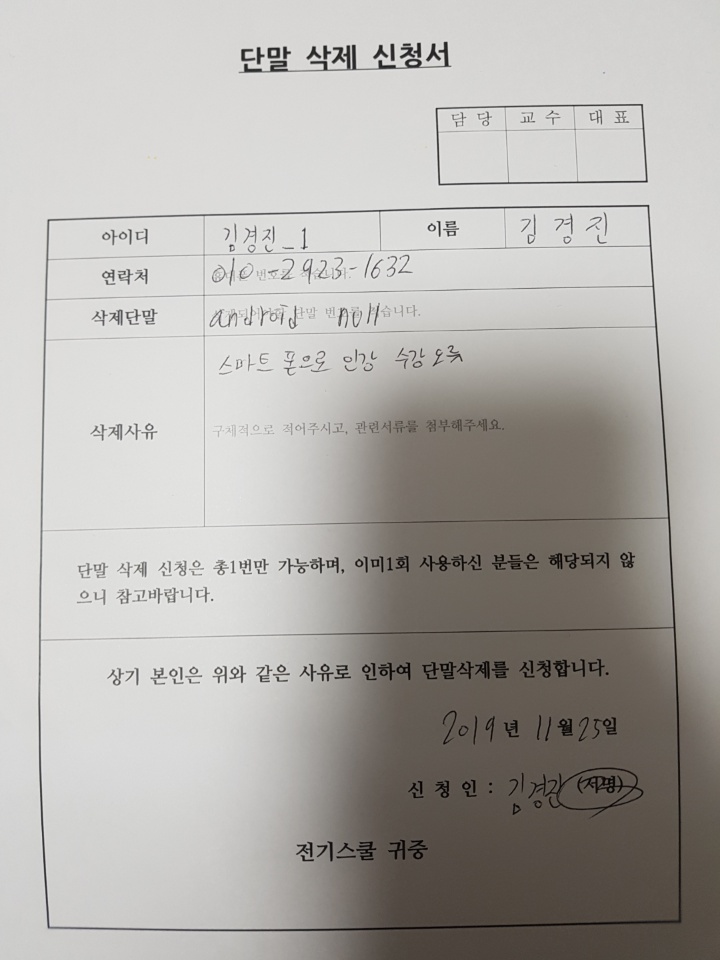 단말 삭제 신청서
담 당 교 수 대 표
아이디 김경진_1 이름 김 경 진
연락처 010-2923-1632
삭제단말 android null
스마트 폰으로 인강 수강 오류
삭제사유 구체적으로 적어주시고, 관련서류를 첨부해주세요.
단말 삭제 신청은 총1번만 가능하며, 이미1회 사용하신 분들은 해당되지 않
으니 참고바랍니다.
상기 본인은 위와 같은 사유로 인하여 단말삭제를 신청합니다.
2019년 11월 25일
신 청 인 : 김경진 (서명)
전기스쿨 귀중